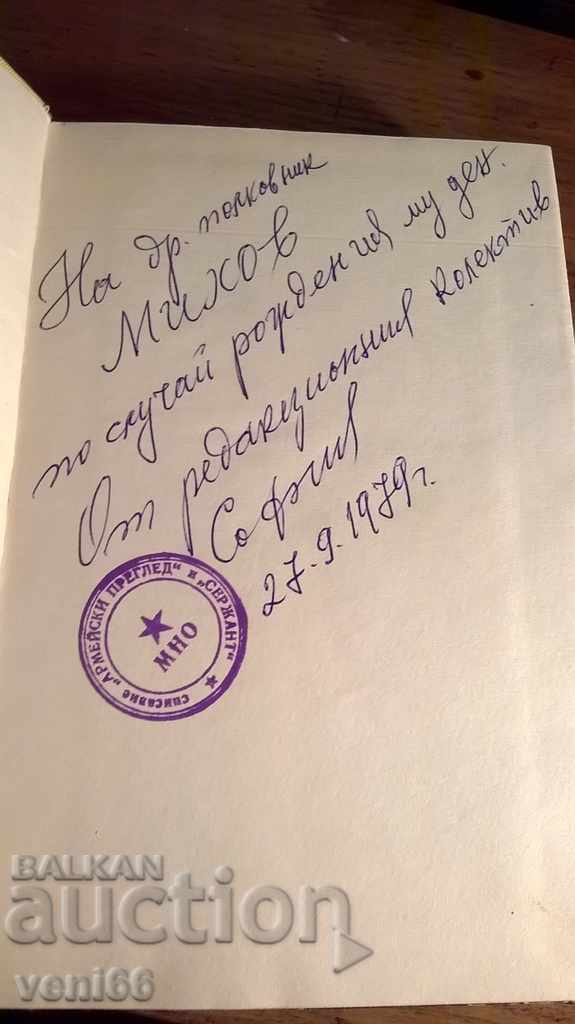 На др. полковник
Михов
по случай рождения му ден.
От редакционния колектив
София
27.9.1979 г.
списание „АРМЕЙСКИ ПРЕГЛЕД“ и „СЕРЖАНТ“
МНО
BALKAN
auction
veni66